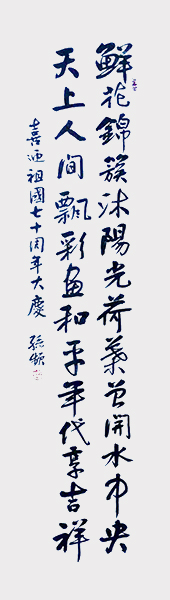 鮮花錦簇沐陽光荷葉曾開水中央
天上人间飄彩畫和平年代享吉祥
喜迎祖國七十周年大慶 孫頻